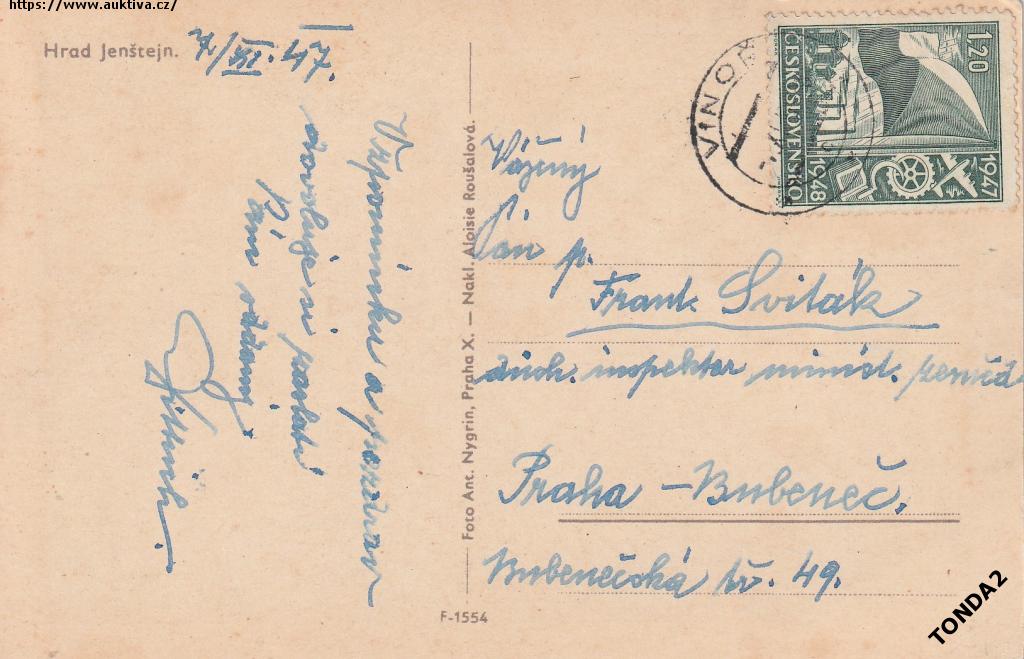 https://www.auktiva.cz/
Hrad Jenštejn.
7/XI. 47.
Vzpomínku a pozdrav
dovoluje si zaslati
Vám oddaný
Foto Ant. Nygrin, Praha X. — Nakl. Aloisie Roušalová.
F-1554
VINOŘ
1·20
ČESKOSLOVENSKO
1947
1948
Vážený
Pan p.
Frant. Sviták
důch. inspektor minist. zeměd.
Praha - Bubeneč.
Bubenečská tř. 49.
TONDA2